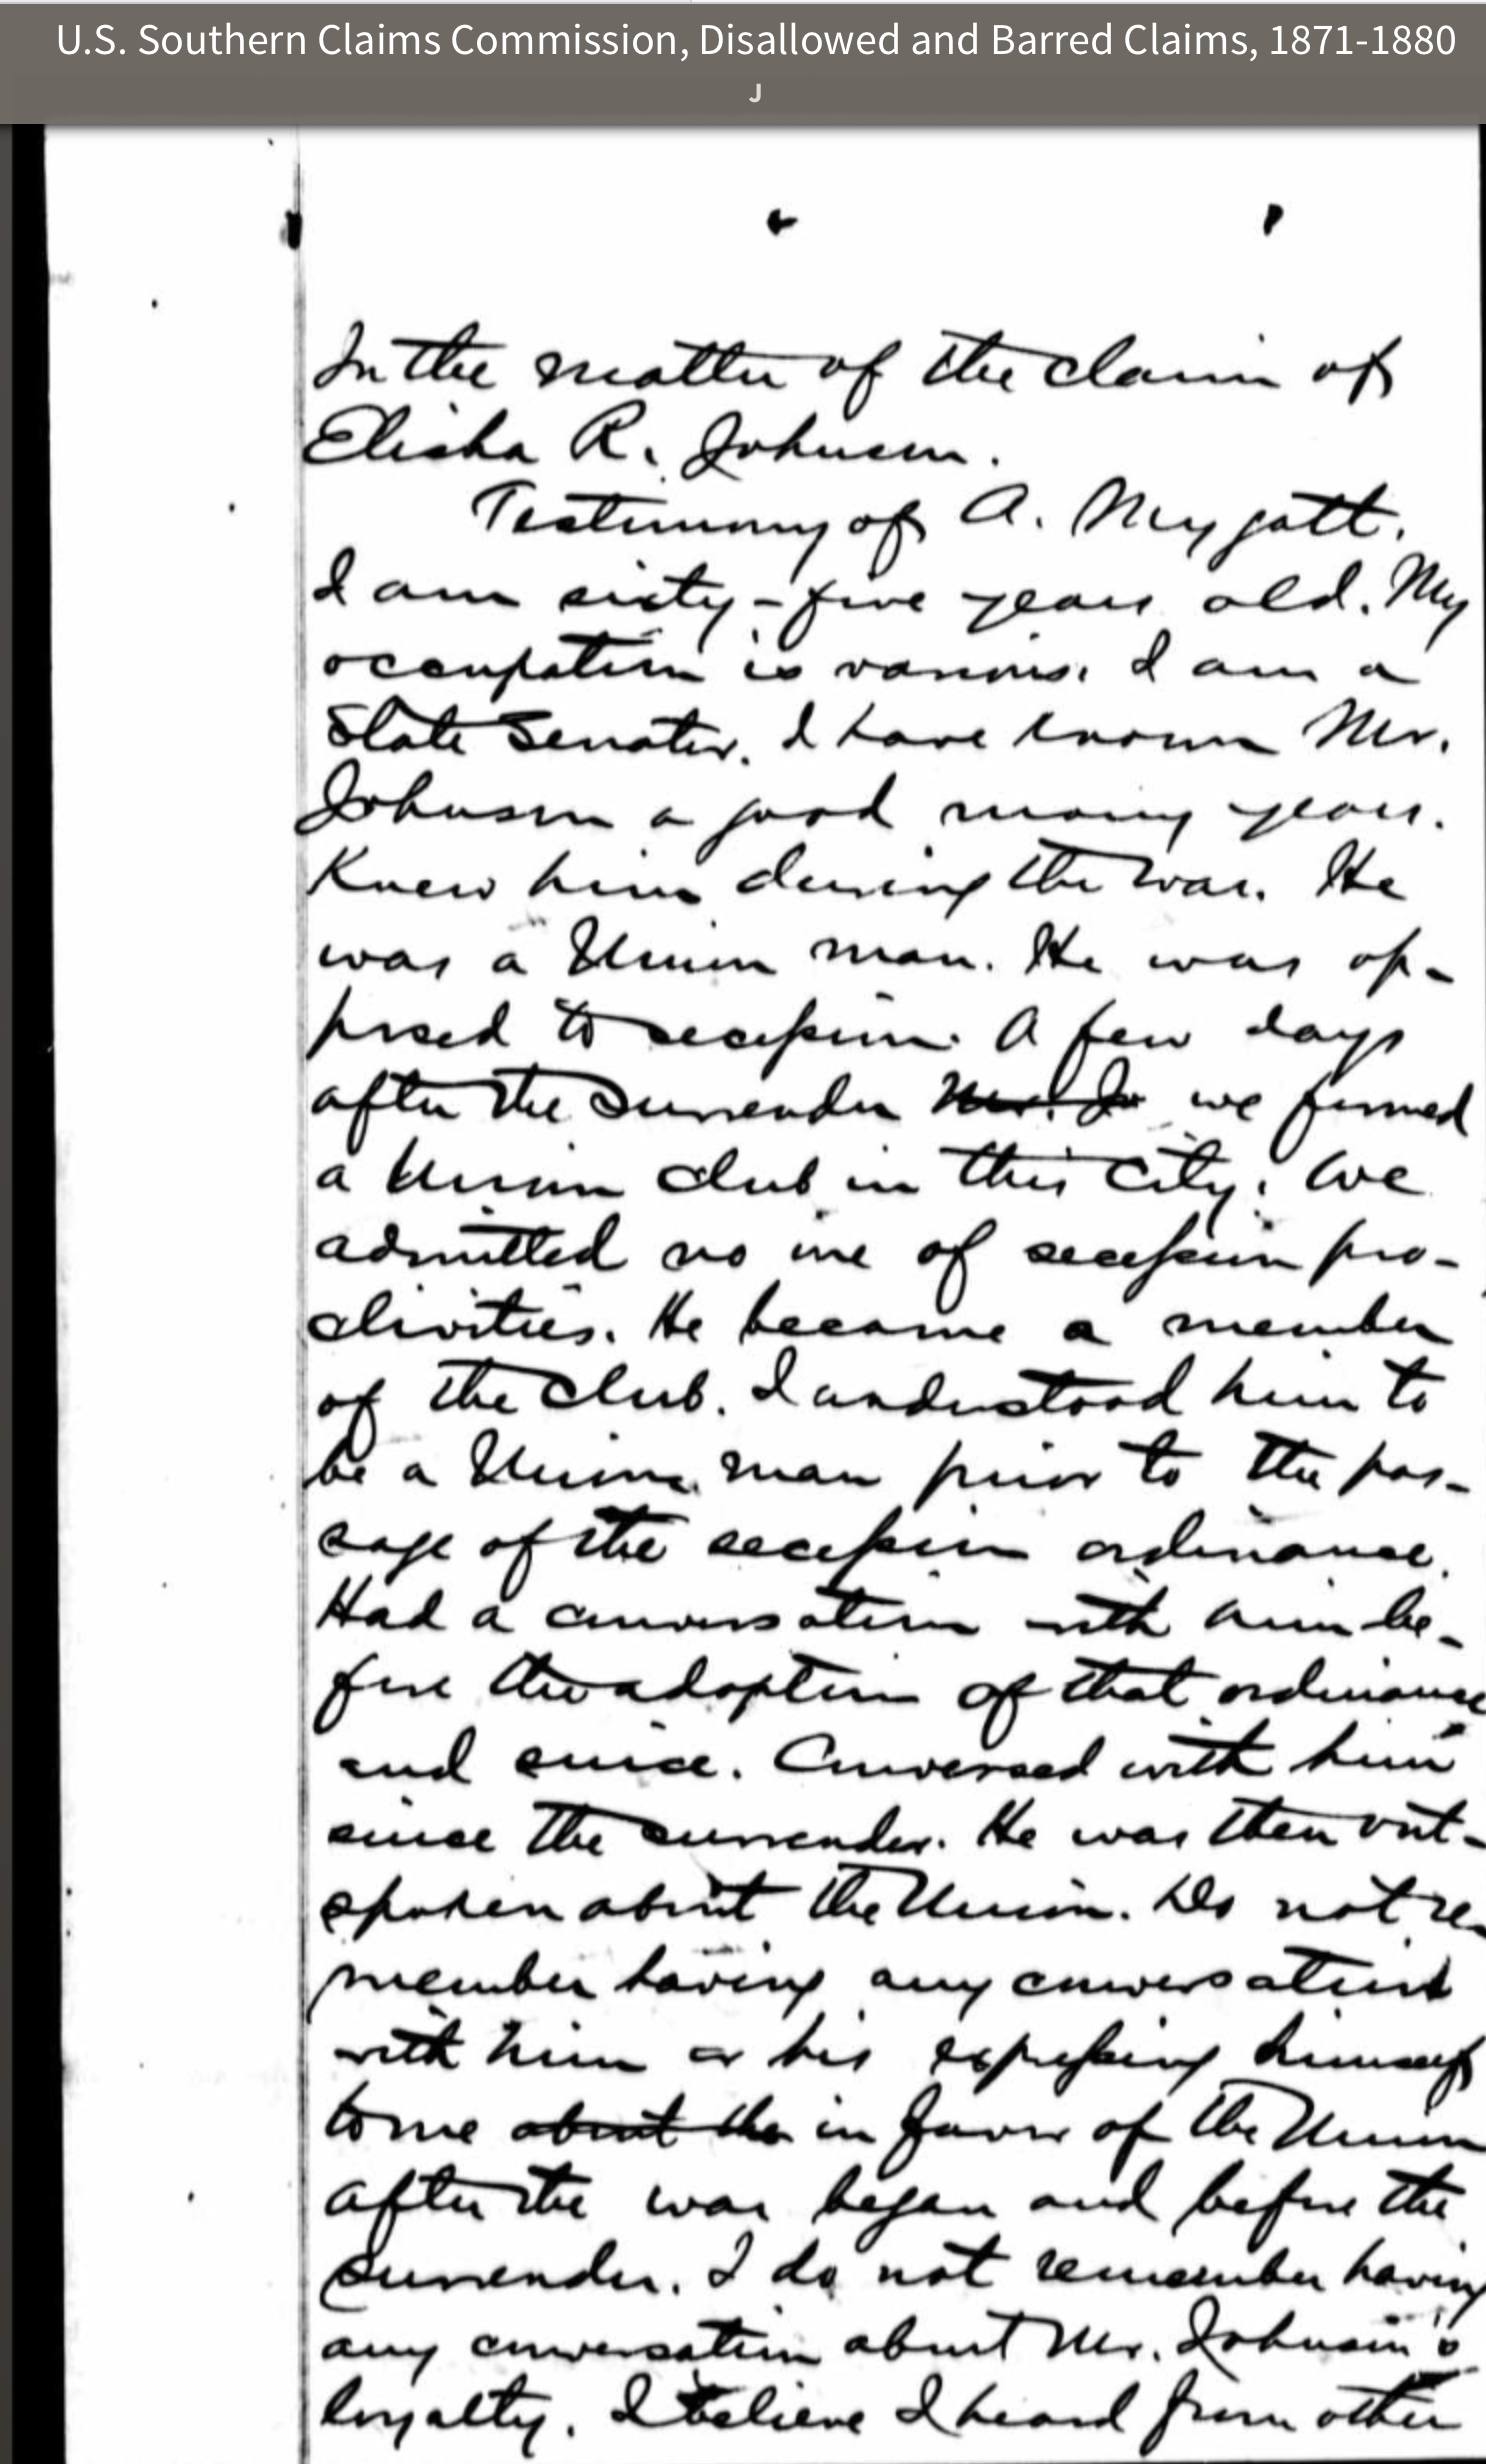 U.S. Southern Claims Commission, Disallowed and Barred Claims, 1871-1880
J
In the matter of the claim of
Elisha R. Johnson.
Testimony of A. Mygatt.
I am sixty-five years old. My
occupation is various. I am a
State Senator. I have known Mr.
Johnson a good many years.
Knew him during the war. He
was a Union man. He was op-
posed to secession. A few days
after the surrender Mr. Jo we formed
a Union club in this City. We
admitted no one of secession pro-
clivities. He became a member
of the club. I understood him to
be a Union man prior to the pas-
sage of the secession ordinance.
Had a conversation with him be-
fore the adoption of that ordinance
and since. Conversed with him
since the surrender. He was then out-
spoken about the Union. Do not re-
member having any conversation
with him or his expressing himself
to me about the in favor of the Union
after the war began and before the
surrender. I do not remember having
any conversation about Mr. Johnson's
loyalty. I believe I heard from other